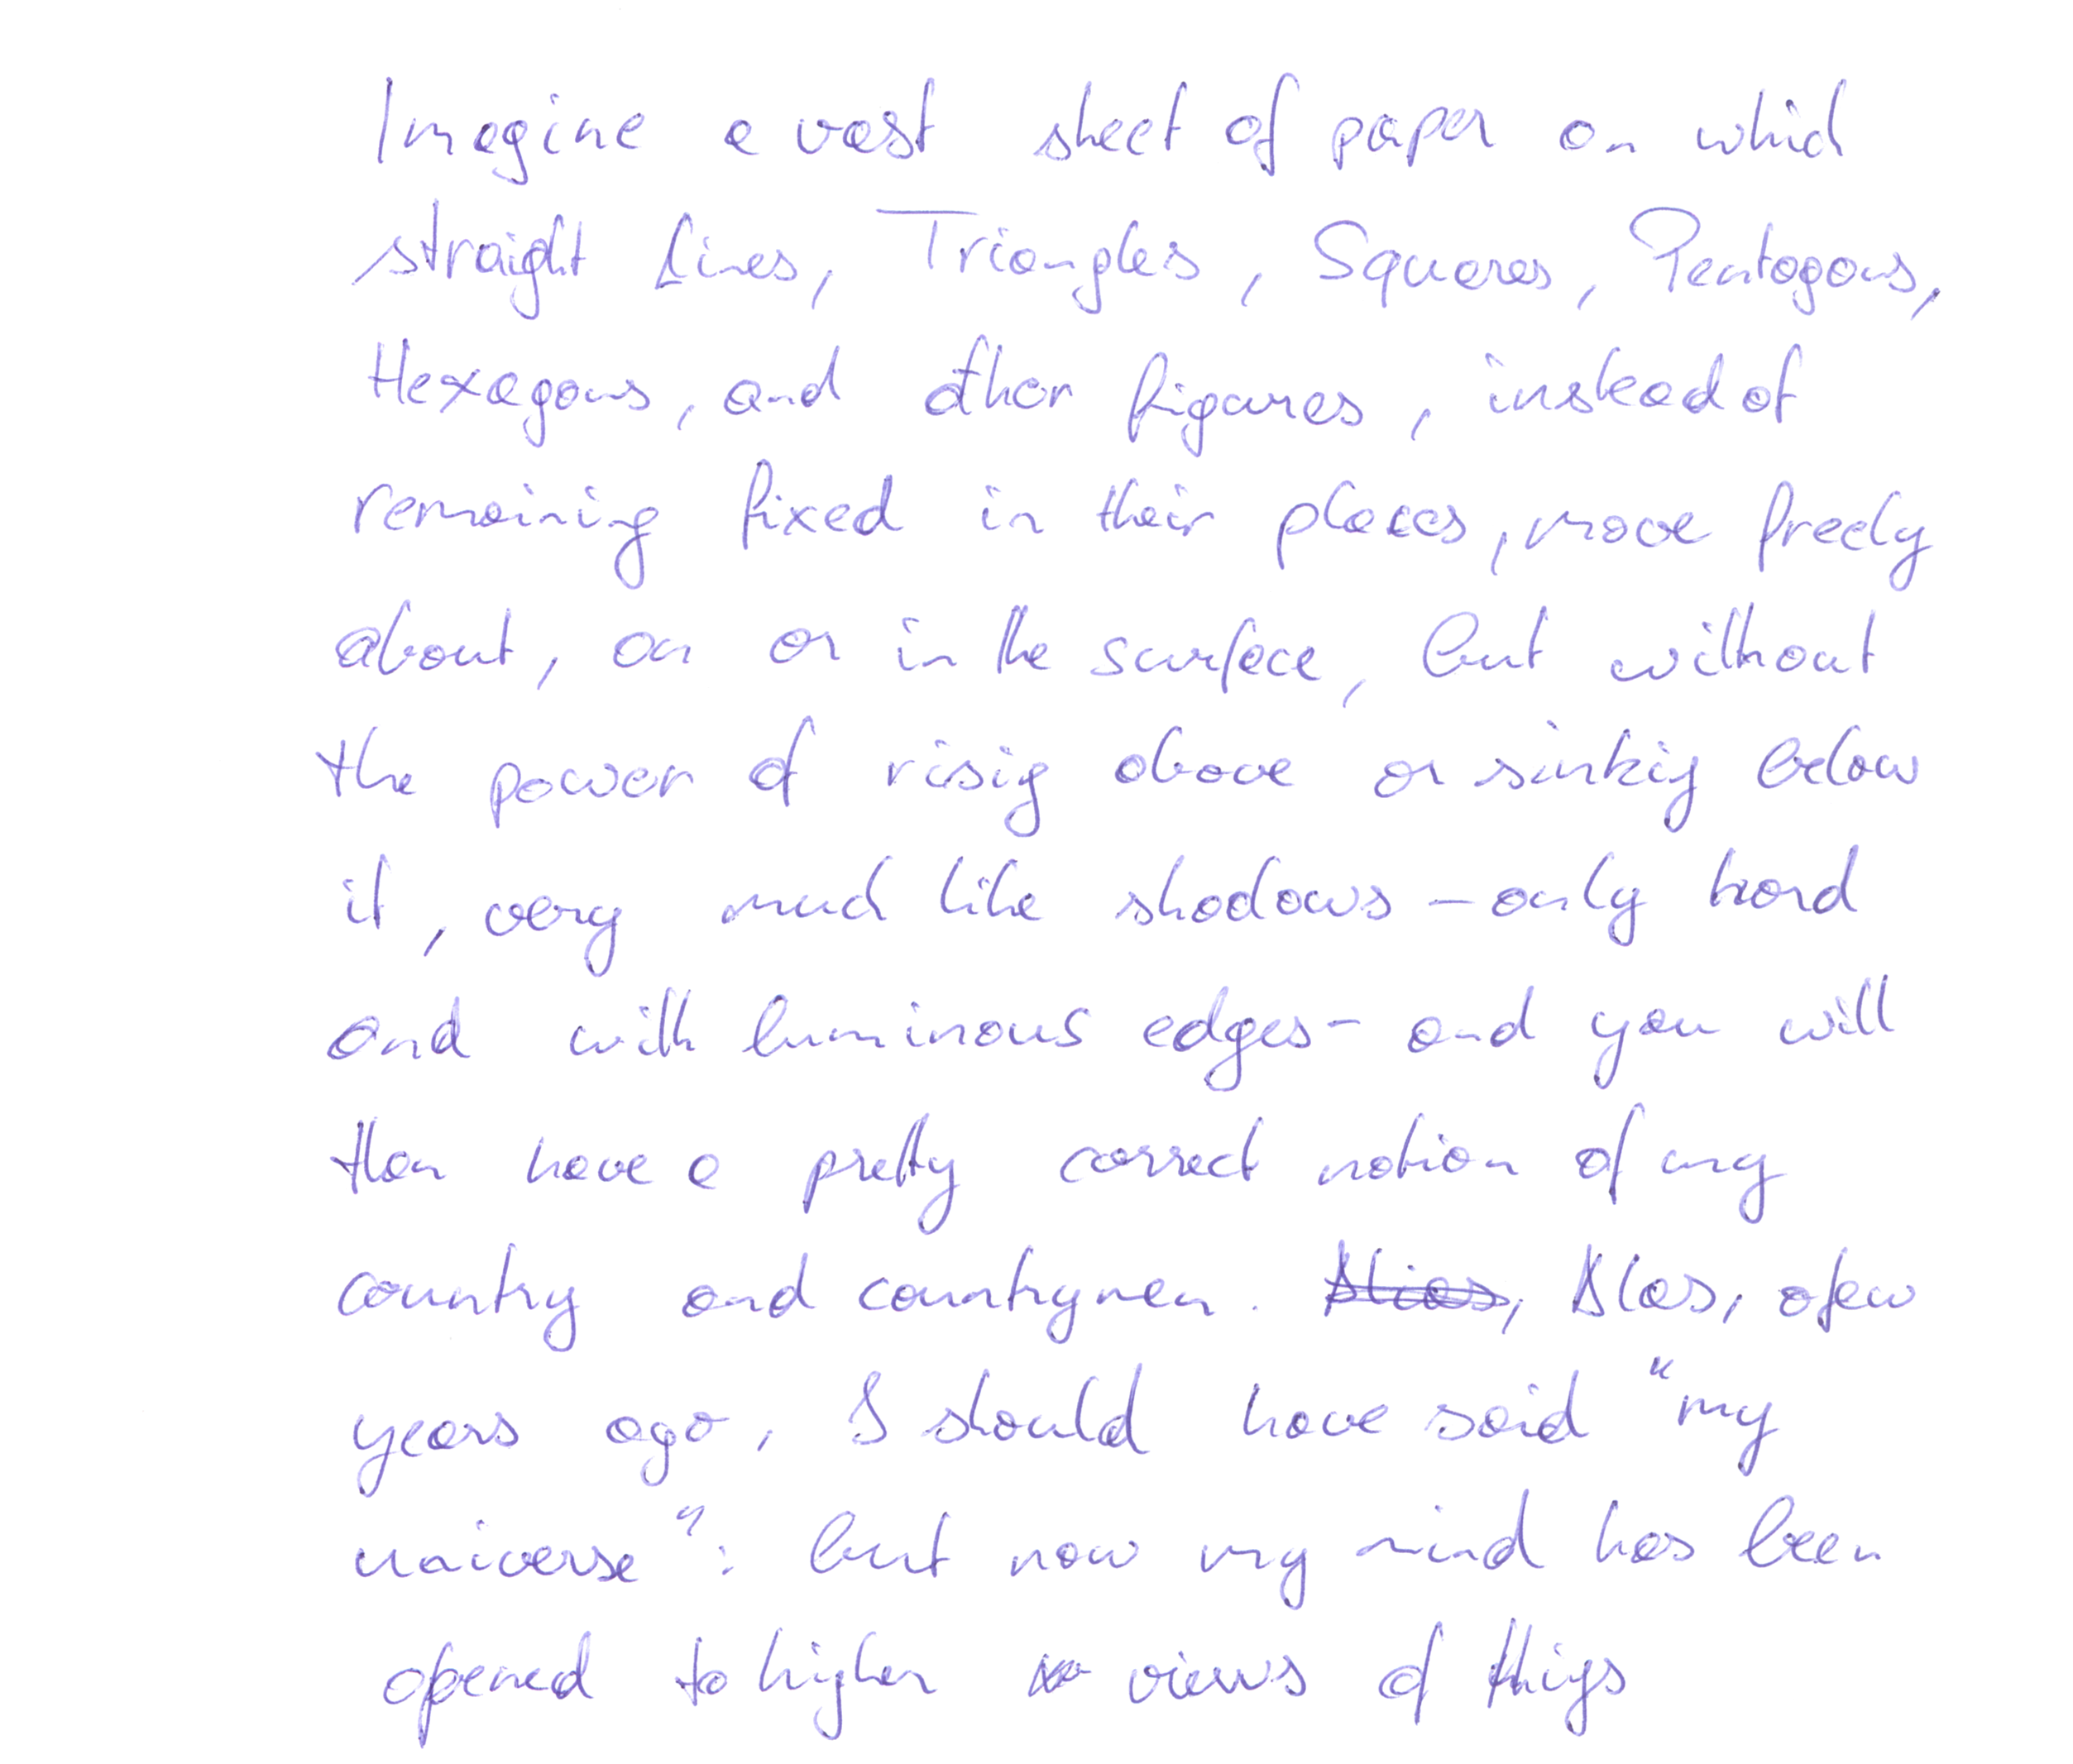 Imagine a vast sheet of paper on which
straight Lines, Triangles, Squares, Pentagons,
Hexagons, and other figures, instead of
remaining fixed in their places, move freely
about, on or in the surface, but without
the power of risig above or sinkig below
it, very much like shadows - only hard
and with luminous edges - and you will
then have a pretty correct notion of my
country and countrymen. Alas, a few
years ago, I should have said "my
universe": but now my mind has been
opened to higher views of thigs